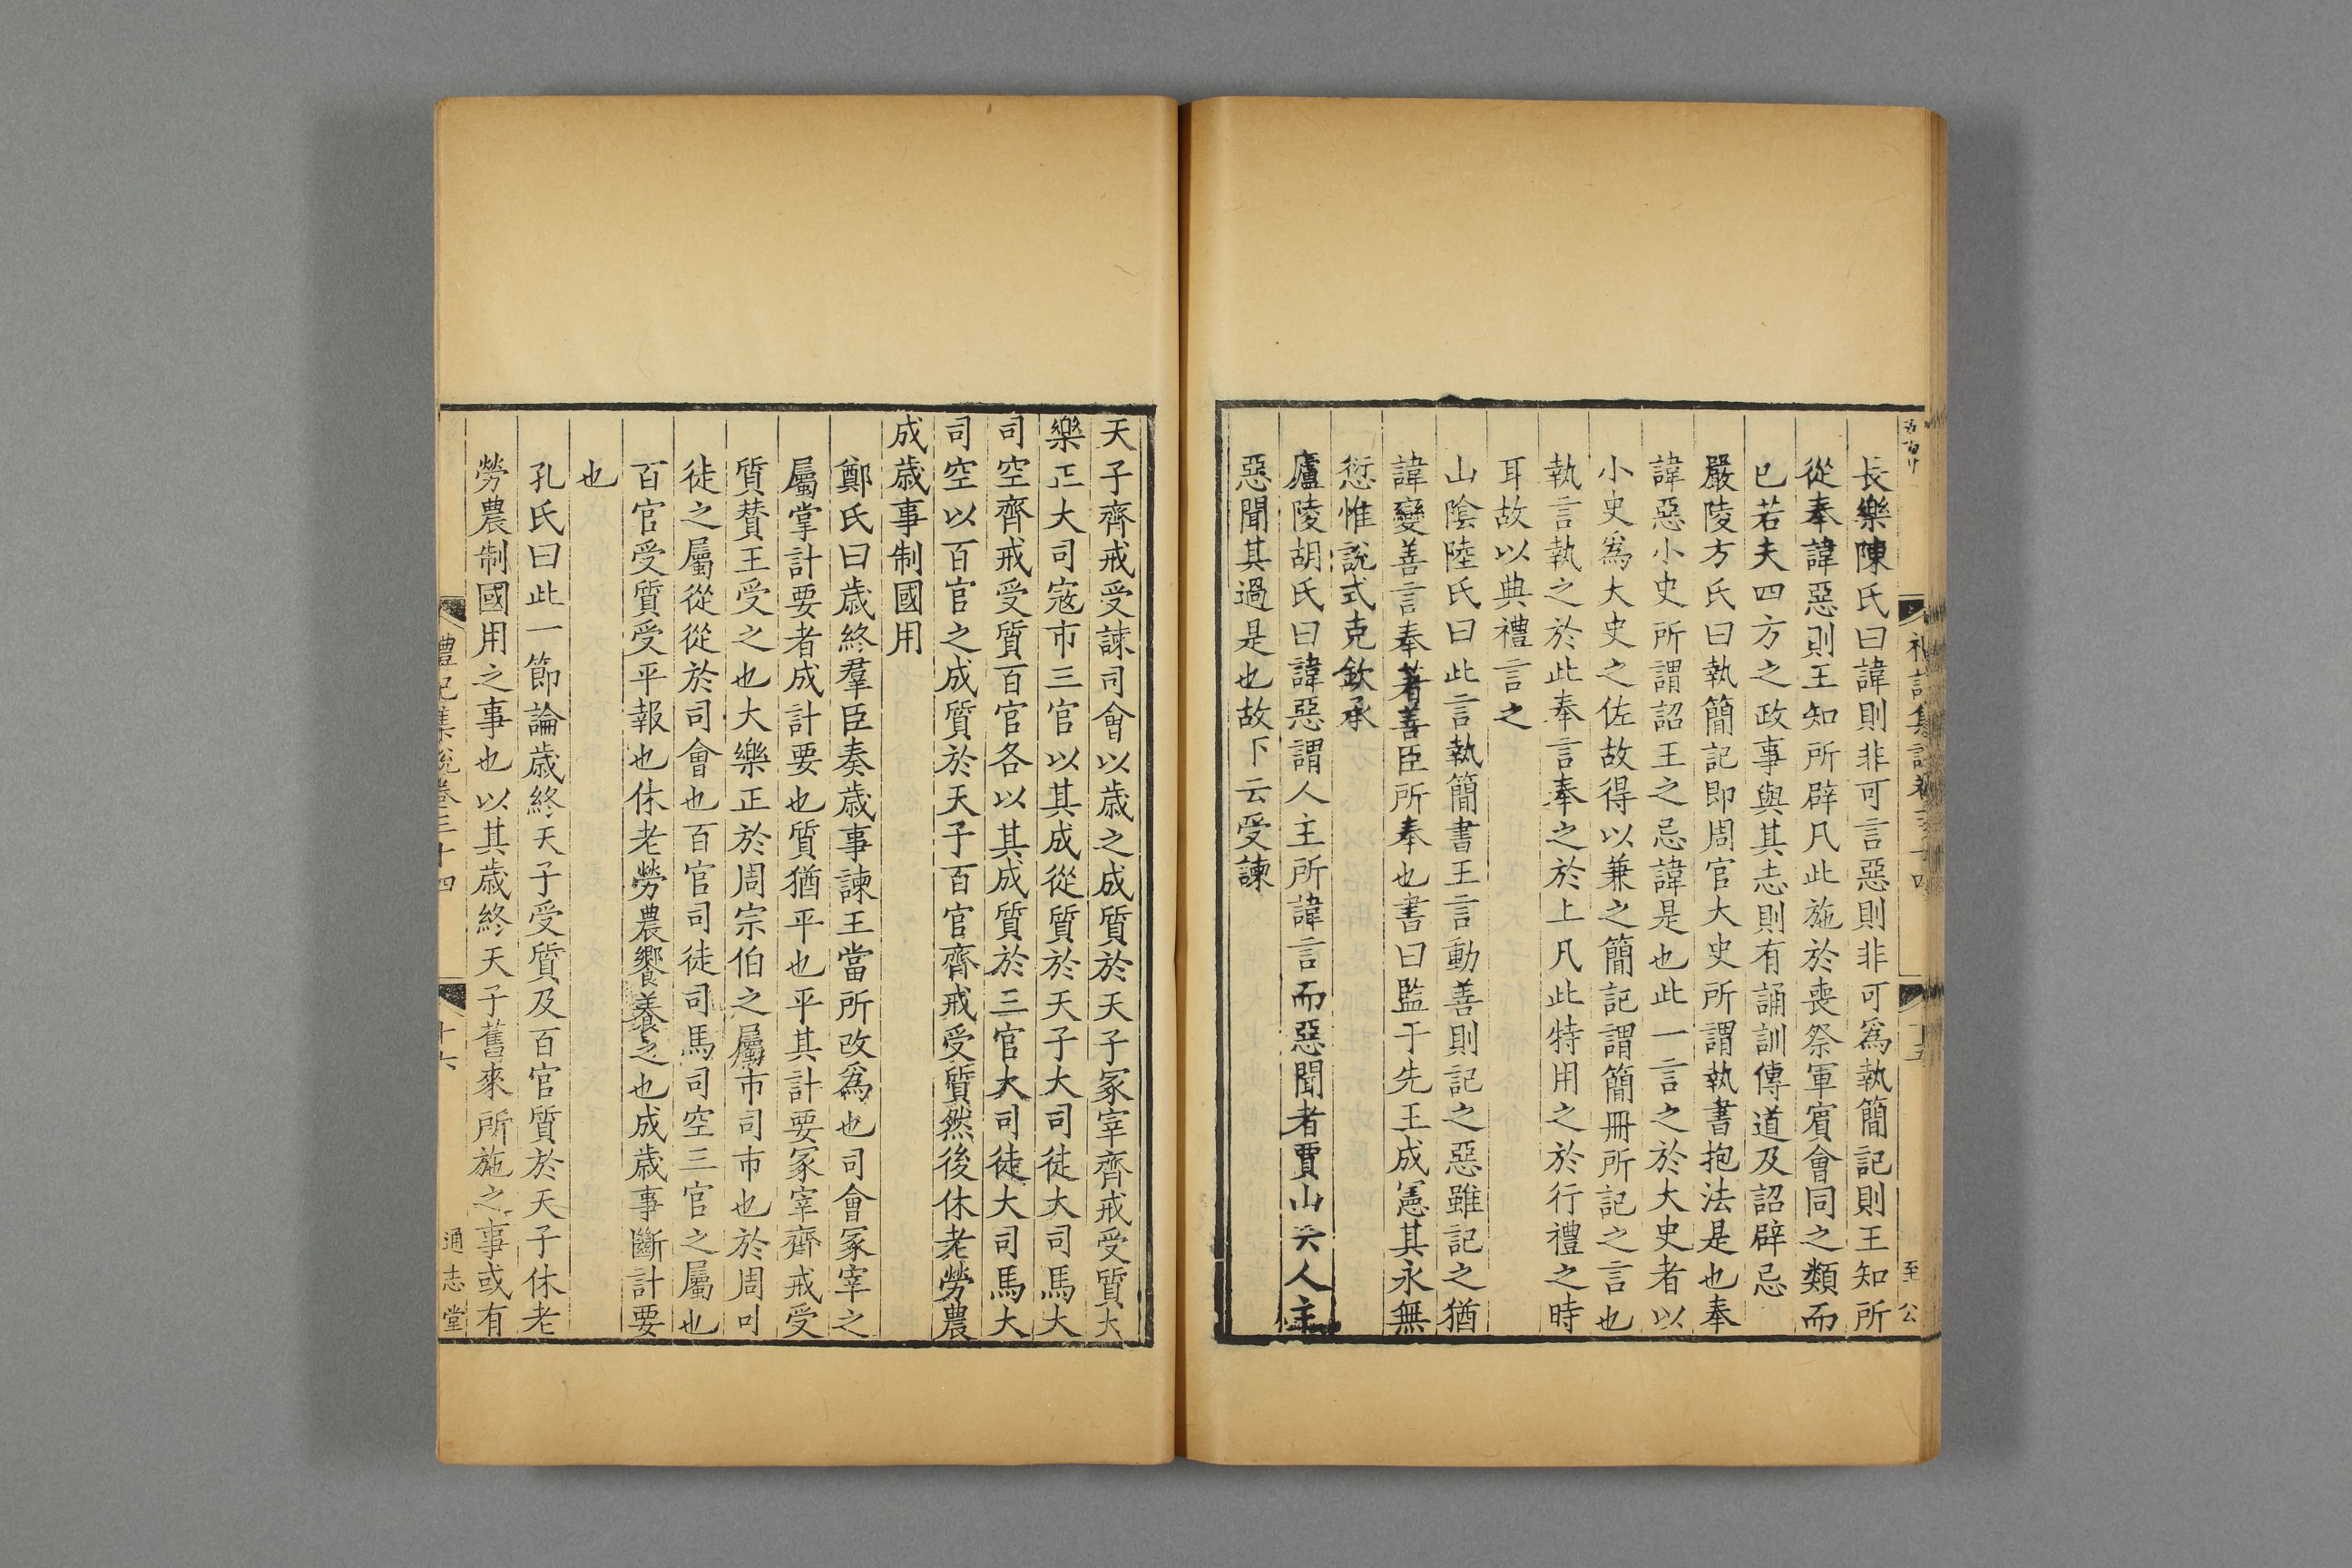 長樂陳氏曰諱則非可言惡則非可爲執簡記則王知所
從奉諱惡則王知所辟凡此施於喪祭軍賓會同之類而
已若夫四方之政事與其志則有誦訓傳道及詔辟忌
嚴陵方氏曰執簡記即周官大史所謂執書抱法是也奉
諱惡小史所謂詔王之忌諱是也此一言之於大史者以
小史爲大史之佐故得以兼之簡記謂簡冊所記之言也
執言執之於此奉言奉之於上凡此特用之於行禮之時
耳故以典禮言之
山陰陸氏曰此言執簡書王言動善則記之惡雖記之猶
諱變善言奉著善臣所奉也書曰監于先王成憲其永無
愆惟說式克欽承
廬陵胡氏曰諱惡謂人主所諱言而惡聞者賈山云人主
惡聞其過是也故下云受諫
天子齊戒受諫司會以歲之成質於天子冢宰齊戒受質大
樂正大司寇市三官以其成從質於天子大司徒大司馬大
司空齊戒受質百官各以其成質於三官大司徒大司馬大
司空以百官之成質於天子百官齊戒受質然後休老勞農
成歲事制國用
鄭氏曰歲終羣臣奏歲事諫王當所改爲也司會冢宰之
屬掌計要者成計要也質猶平也平其計要冢宰齊戒受
質贊王受之也大樂正於周宗伯之屬市司市也於周司
徒之屬從從於司會也百官司徒司馬司空三官之屬也
百官受質受平報也休老勞農饗養之也成歲事斷計要
也
孔氏曰此一節論歲終天子受質及百官質於天子休老
勞農制國用之事也以其歲終天子舊來所施之事或有
禮記集說卷三十四
十六
通志堂